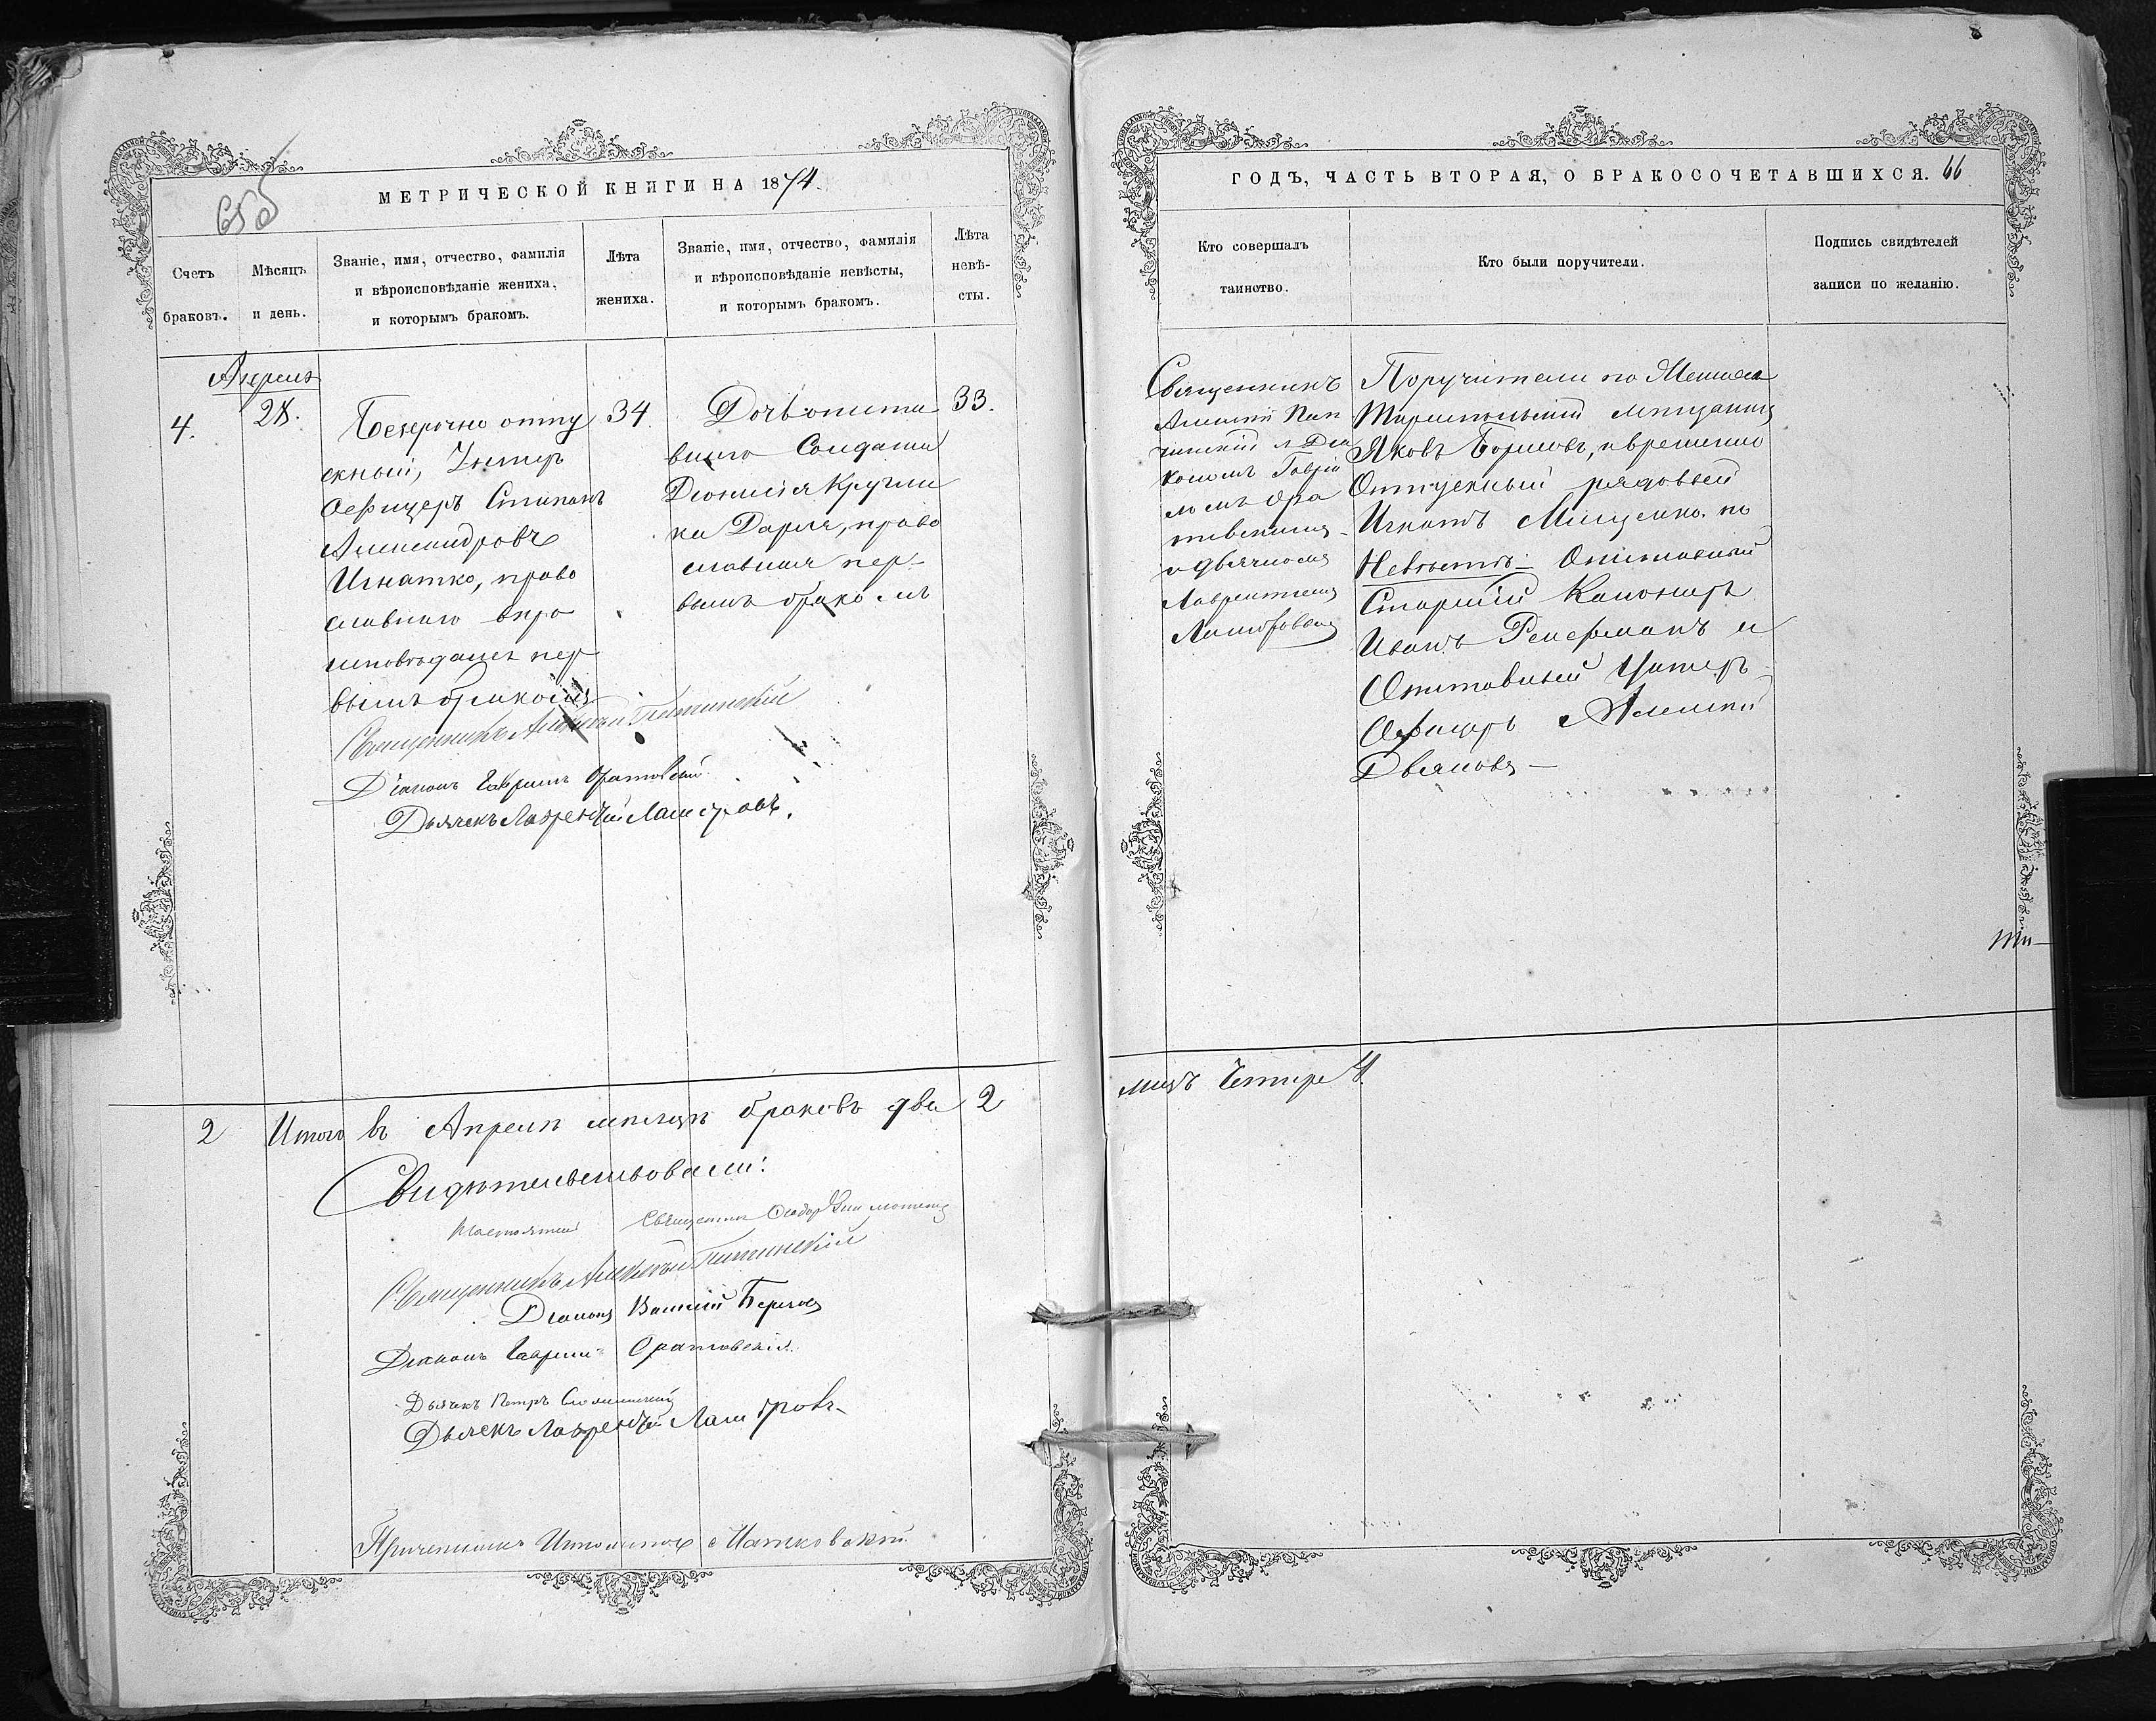 МЕТРИЧЕСКОЙ КНИГИ НА 1874.
Счетъ браковъ.
Мѣсяцъ и день.
Званіе, имя, отчество, фамилія
и вѣроисповѣданіе жениха,
и которымъ бракомъ.
Лѣта
жениха.
Званіе, имя, отчество, фамилія
и вѣроисповѣданіе невѣсты,
и которымъ бракомъ.
Лѣта
невѣ-
сты.
Апрель
4.
28.
Безсрочно отпу
скный, Унтер
Офицеръ Степанъ
Александровъ
Игнатко, право
славнаго веро
исповѣданія пер
вымъ бракомъ
34.
Дочь отста
внаго Солдата
Дюнисія Кругли
ка Дарія, право
славная пер-
вымъ бракомъ
33.
Священникъ Алексѣй
Діаконъ Гавріилъ Оратовскій
Дьячекъ Лаврентій Лашкровъ.
2 Итого въ Апрелѣ месяцѣ браковъ два 2
Свидѣтельствовали:
Настоятель Священникъ
Священникъ Алексѣй
Діаконъ Василій
Діаконъ Гавріилъ Оратовскій.
Дьячекъ Петръ
Дьячекъ Лаврентій
Причетникъ Ипполитъ Матковскій.
ГОДЪ, ЧАСТЬ ВТОРАЯ, О БРАКОСОЧЕТАВШИХСЯ. 66
Кто совершалъ
таинство.
Кто были поручители.
Подпись свидѣтелей
записи по желанію.
Священникъ
Алексѣй
съ Діа
кономъ Гаврі
ломъ Ора
товскимъ
и дьячкомъ
Лаврентіемъ
Поручители по Жениха
мещанинъ
Яковъ Борисовъ, и временно
Отпускный рядовый
Игнатъ Мищенко. по
Невѣстѣ: Отставной
Старшій Канониръ
Иванъ и
Отставный Унтеръ-
Офицеръ Алексѣй
лицъ Четыре 4.